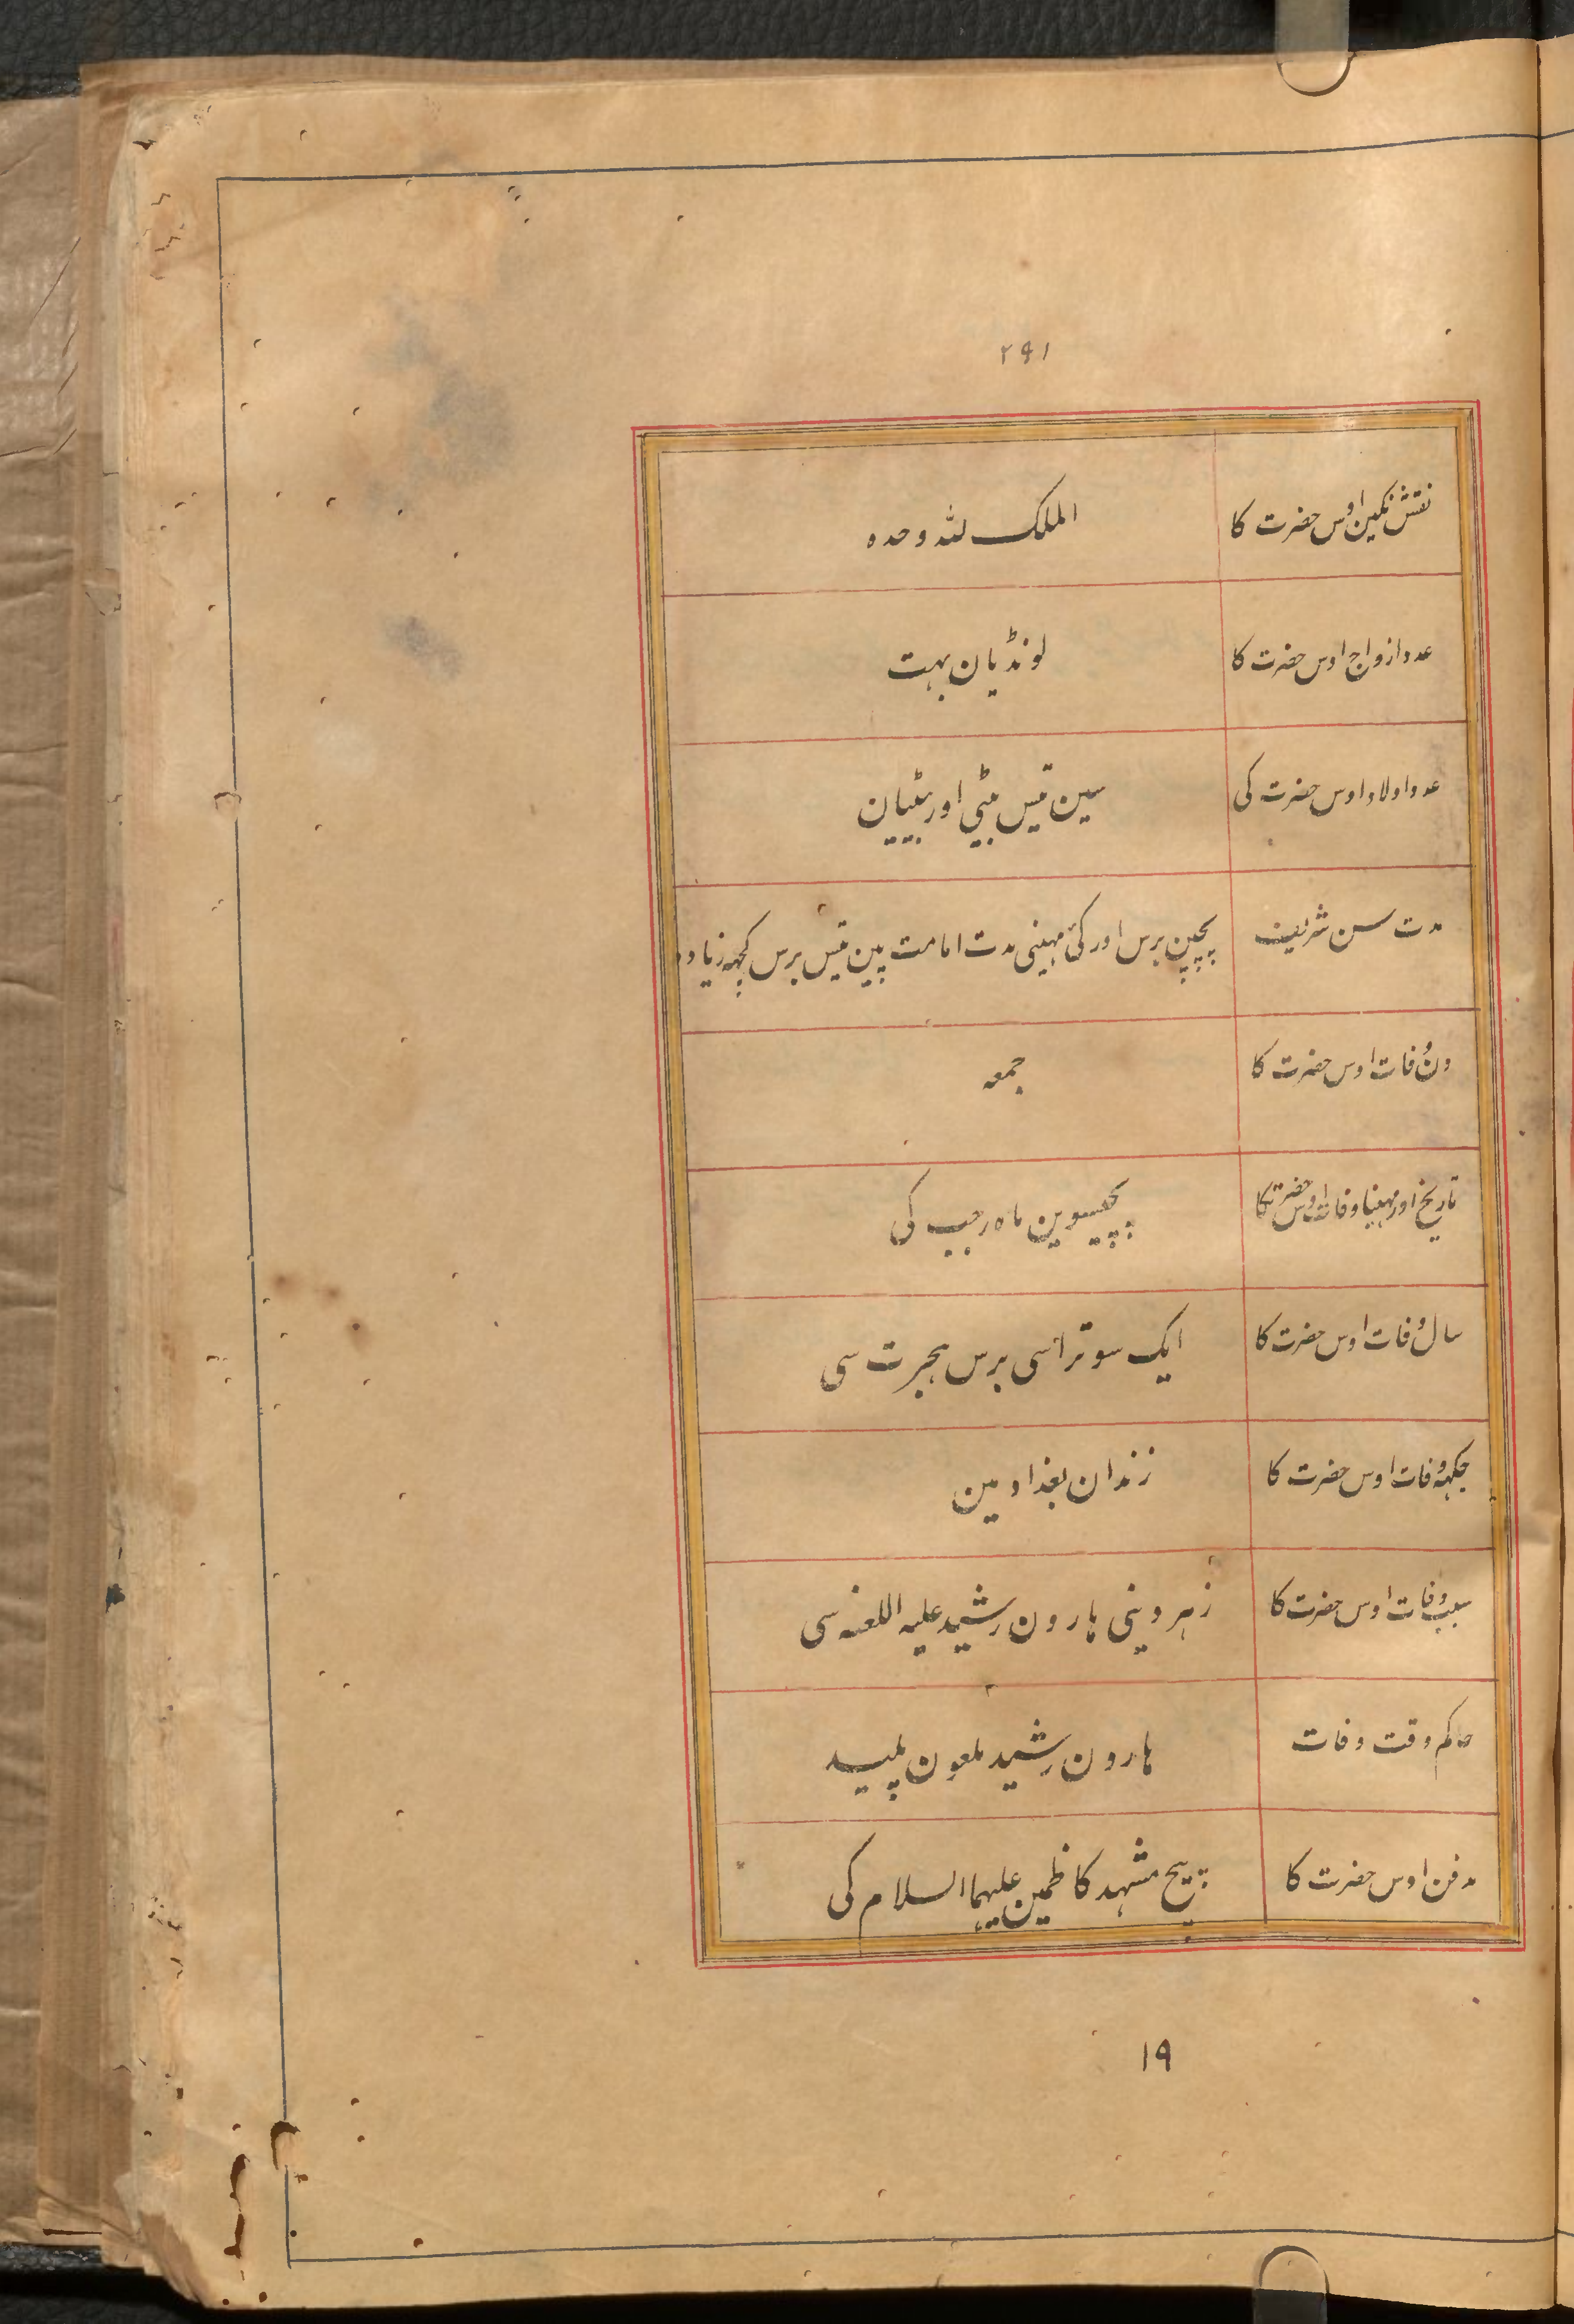 ۲۹۱
نقش نکین اوس حضرت کا الملک للہ وحدہ
عدد ازواج اوس حضرت کا لونڈیان بہت
عدد اولاد اوس حضرت کی سین تیس بیٹی اور بیٹیان
مدت سن شریف پچپن برس اور کئی مہینی مدت امامت پین تیس برس کچہہ زیادہ
دن وفات اوس حضرت کا جمعہ
تاریخ اور مہینا وفات اوس حضرت کا پچیسوین ماہ رجب کی
سال وفات اوس حضرت کا ایک سو تراسی برس ہجرت سی
جکہہ وفات اوس حضرت کا زندان بغداد مین
سبب وفات اوس حضرت کا زہر دینی ہارون رشید علیہ اللعنہ سی
حاکم وقت وفات ہارون رشید ملعون پلید
مدفن اوس حضرت کا بیچ مشہد کاظمین علیہما السلام کی
۱۹